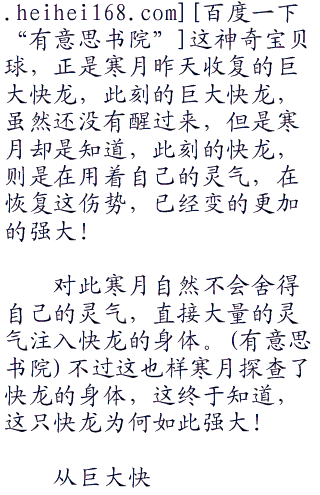 .heihei168.com][百度一下
“有意思书院”]这神奇宝贝
球，正是寒月昨天收复的巨
大快龙，此刻的巨大快龙，
虽然还没有醒过来，但是寒
月却是知道，此刻的快龙，
则是在用着自己的灵气，在
恢复这伤势，已经变的更加
的强大！
对此寒月自然不会舍得
自己的灵气，直接大量的灵
气注入快龙的身体。(有意思
书院)不过这也样寒月探查了
快龙的身体，这终于知道，
这只快龙为何如此强大！
从巨大快